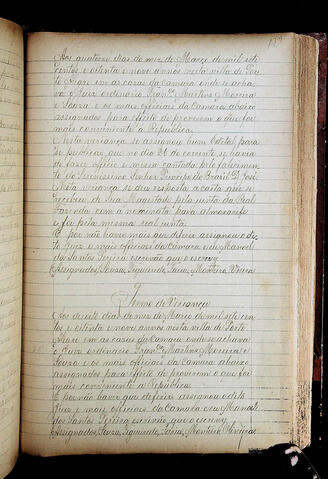 Aos quatorze dias do mez de Março de mil sete
centos e oitenta e nove annos nesta villa de Por
to Alegre em as casas da Camara onde se acha
va o Juiz ordinario Franco Martins Moreira
e Souza e os mais officiaes da Camara abaixo
assignados para effeito de proverem o que for
mais conveniente a Republica.
Nesta veriança se assignou hum Edital para
se publicar que no dia 26 do corrente se havia
de fazer officio e missa cantada pelo falecimen
to do Serenissimo Senhor Principe do Brazil D. José.
Nesta veriança se deu resposta a carta que se
recebeu de Sua Magestade pela junta da Real
Fazenda com a nomeata para almoxarife
e feita pela mesma real junta.
E por não haver mais que deferir assignou o di
to Juiz e mais officiaes da Camara e eu Manoel
dos Santos Pereira escrivão que o escrevy
Assignados, Souza, Siqueira, Faria, Monteiro, Vieira
Termo de Veriança
Aos dias do mez de Março de mil sete cen
tos e oitenta e nove annos nesta villa de Porto
Alegre em as casas da Camara onde se achava
o Juiz ordinario Franco Martins Moreira e
Souza e os mais officiaes da Camara abaixo
assignados para effeito de proverem o que for
mais conveniente a Republica.
E por não haver que deferir assignou o dito
Juiz e mais officiaes da Camara e eu Manoel
dos Santos Pereira escrivão que o escrevy
Assignados, Souza, Siqueira, Faria, Monteiro, Oliveira